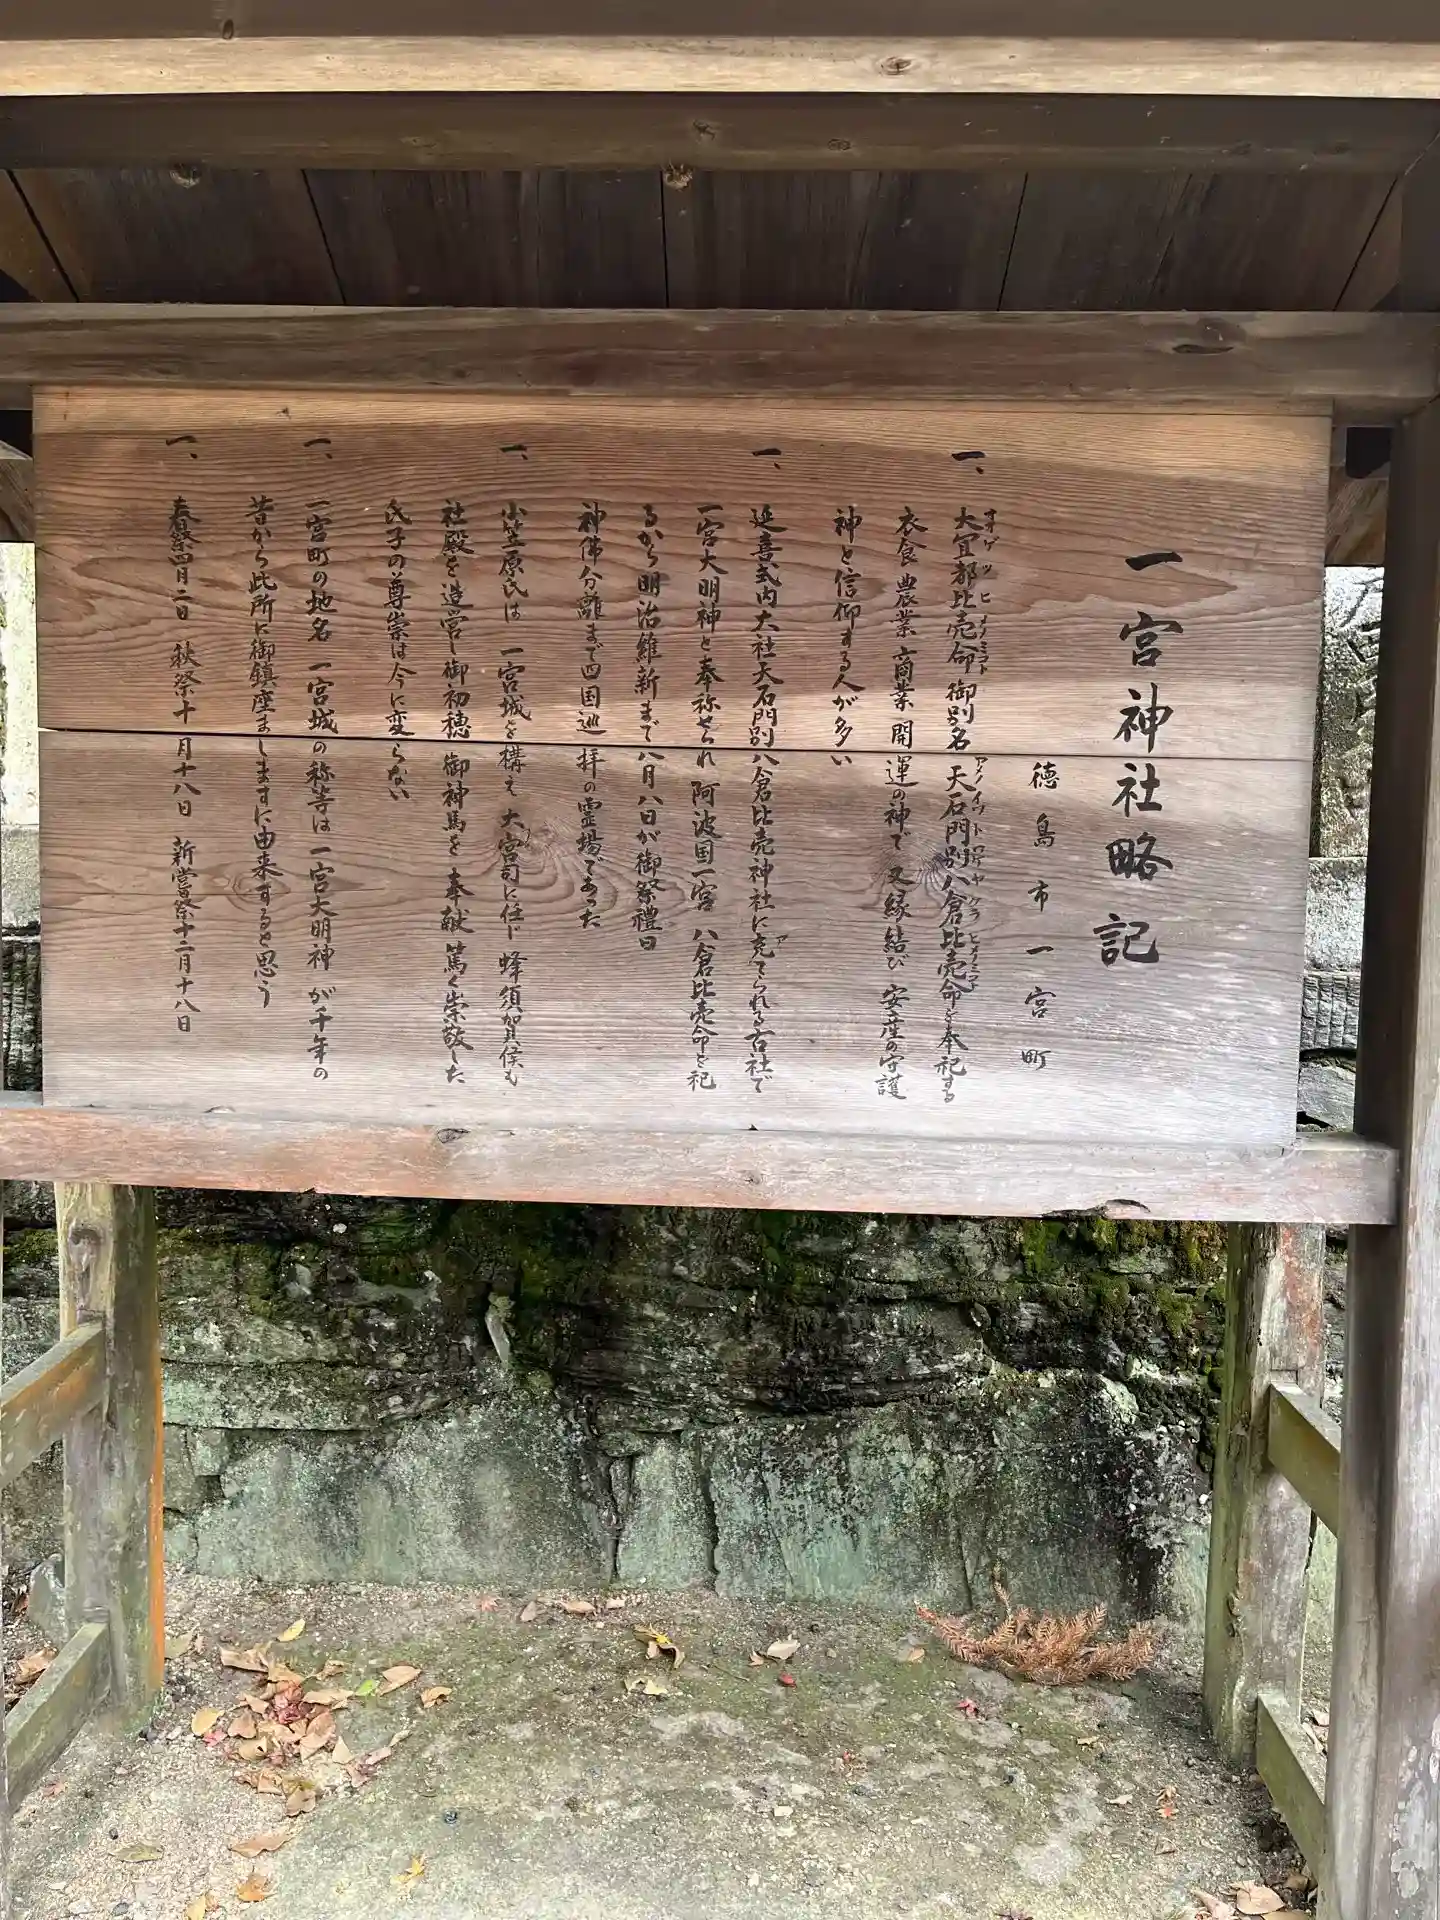 一宮神社略記
徳島市一宮町
一、大宜都比売命 御別名 天石門別八倉比売命を奉祀する
オオゲツヒメノミコト アメノイワトワケヤクラヒメノミコト
衣食 農業 商業 開運の神で 又縁結び 安産の守護
神と信仰する人が多い
一、延喜式内大社天石門別八倉比売神社に充てられる古社で
ア
一宮大明神と奉称せられ 阿波国一宮 八倉比売命を祀
るから明治維新まで八月八日が御祭禮日
神佛分離まで四国巡拝の霊場であった
一、小笠原氏は 一宮城を構え 大宮司に任じ 蜂須賀侯も
社殿を造営し御初穂 御神馬を 奉献 篤く崇敬した
氏子の尊崇は今に変らない
一、一宮町の地名 一宮城の称等は 一宮大明神 が千年の
昔から此所に御鎮座ましますに由来すると思う
一、春祭四月二日 秋祭十月十八日 新嘗祭十二月十八日